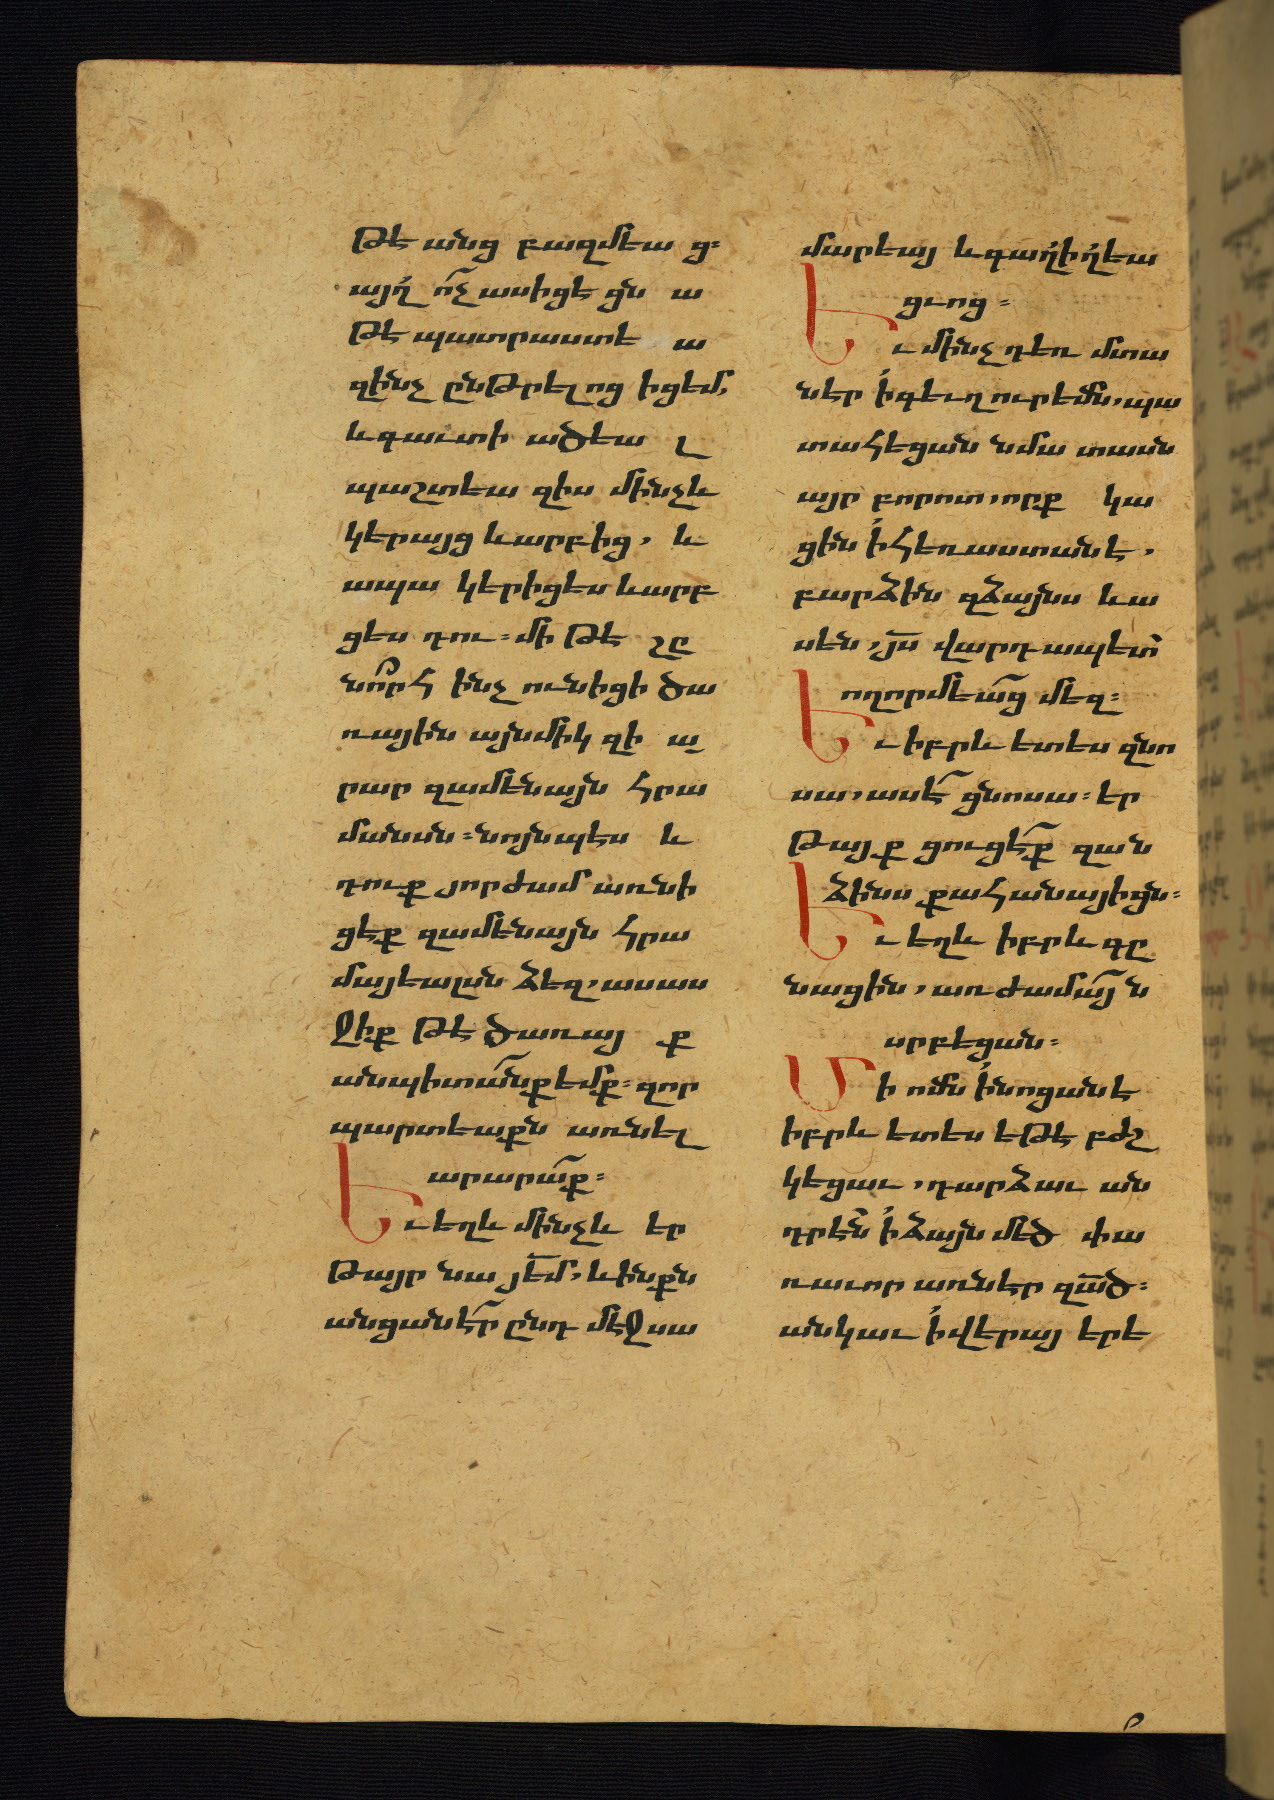 թե անց բազմեա ց։
այղ ո՞չ ասիցե ցն ա
թե պատրաստե ա
զինչ ընթրելոց իցեմ,
և գաւտի ածեա լ
պաշտեա զիս մինչև
կերայց և արբից, և
ապա կերիցես և արբ
ցես դու։ մի թե շը
նո՞րհ ինչ ունիցի ծա
ռային այնմիկ զի ա
րար զամենայն հրա
մանսն։ նոյնպես և
դուք յորժամ առնի
ցեք զամենայն հրա
մայեալսն ձեզ, ասաս
ջիք թե ծառայ ք
անպիտա՞նք եմք։ զոր
պարտեաքն առնել
արարա՞ք։
Եւ եղև մինչև եր
թայր նա յե՟մ, և ինքն
անցանե՞ր ընդ մեջ սա
մարեայ և գաղիղեա
ցւոց։
Եւ մինչ դեռ մտա
ներ ի գեւղ ուրեմն, պա
տահեցան նմա տասն
այր բորոտ, որք կա
ցին ի հեռաստանե,
բարձին զձայնս և ա
սեն, յ՟ս վարդապետ
ողորմեա՞ց մեզ։
Եւ իբրև ետես զնո
սա, ասե՞ ցնոսա։ եր
թայք ցուցե՞ք զան
ձինս քահանայիցն։
Եւ եղև իբրև գը
նացին, առժամա՞յն
սրբեցան։
Մի ոմն ի նոցանե
իբրև ետես եթե բժշ
կեցաւ, դարձաւ ան
դրեն ի ձայն մեծ փա
ռաւոր առներ զա՟ծ։
անկաւ ի վերայ երե